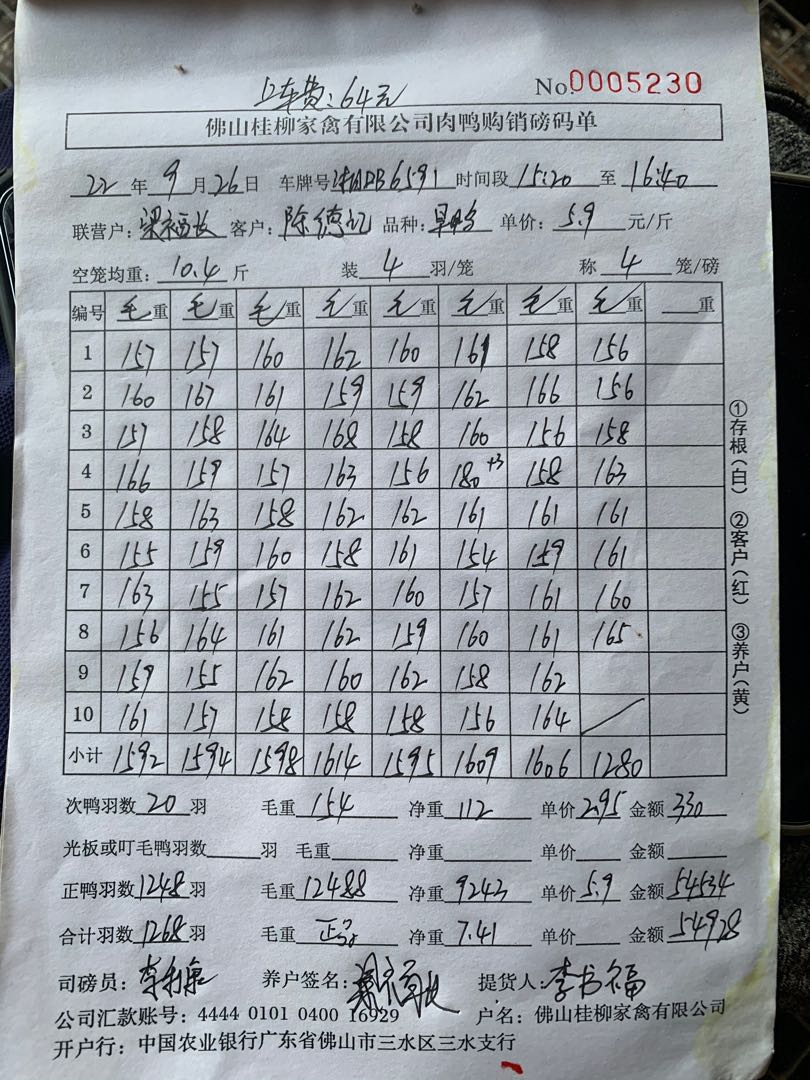 上车费：64元
No.0005230
佛山桂柳家禽有限公司肉鸭购销磅码单
22年9月26日 车牌号湘DB6591 时间段15:20至16:40
联营户：梁福长 客户：陈德记 品种：旱鸭 单价：5.9元/斤
空笼均重：10.4斤 装4羽/笼 称4笼/磅
编号 毛重 毛重 毛重 毛重 毛重 毛重 毛重 毛重 重
1 157 157 160 162 160 161 158 156
2 160 167 161 159 159 162 166 156
3 157 158 164 168 158 160 156 158
4 166 159 157 163 156 180+3 158 163
5 158 163 158 162 162 161 161 161
6 155 159 160 158 161 154 159 161
7 163 155 157 162 160 157 161 160
8 156 164 161 162 159 160 161 165
9 159 155 162 160 162 158 162
10 161 157 158 158 158 156 164
小计 1592 1594 1598 1614 1595 1609 1606 1280
①存根（白） ②客户（红） ③养户（黄）
次鸭羽数20羽 毛重154 净重112 单价2.95 金额330
光板或叮毛鸭羽数 羽 毛重 净重 单价 金额
正鸭羽数1248羽 毛重12488 净重9243 单价5.9 金额54534
合计羽数1268羽 毛重 净重7.41 单价 金额54928
司磅员： 养户签名：梁福长 提货人：李书福
公司汇款账号：4444 0101 0400 16929 户名：佛山桂柳家禽有限公司
开户行：中国农业银行广东省佛山市三水区三水支行